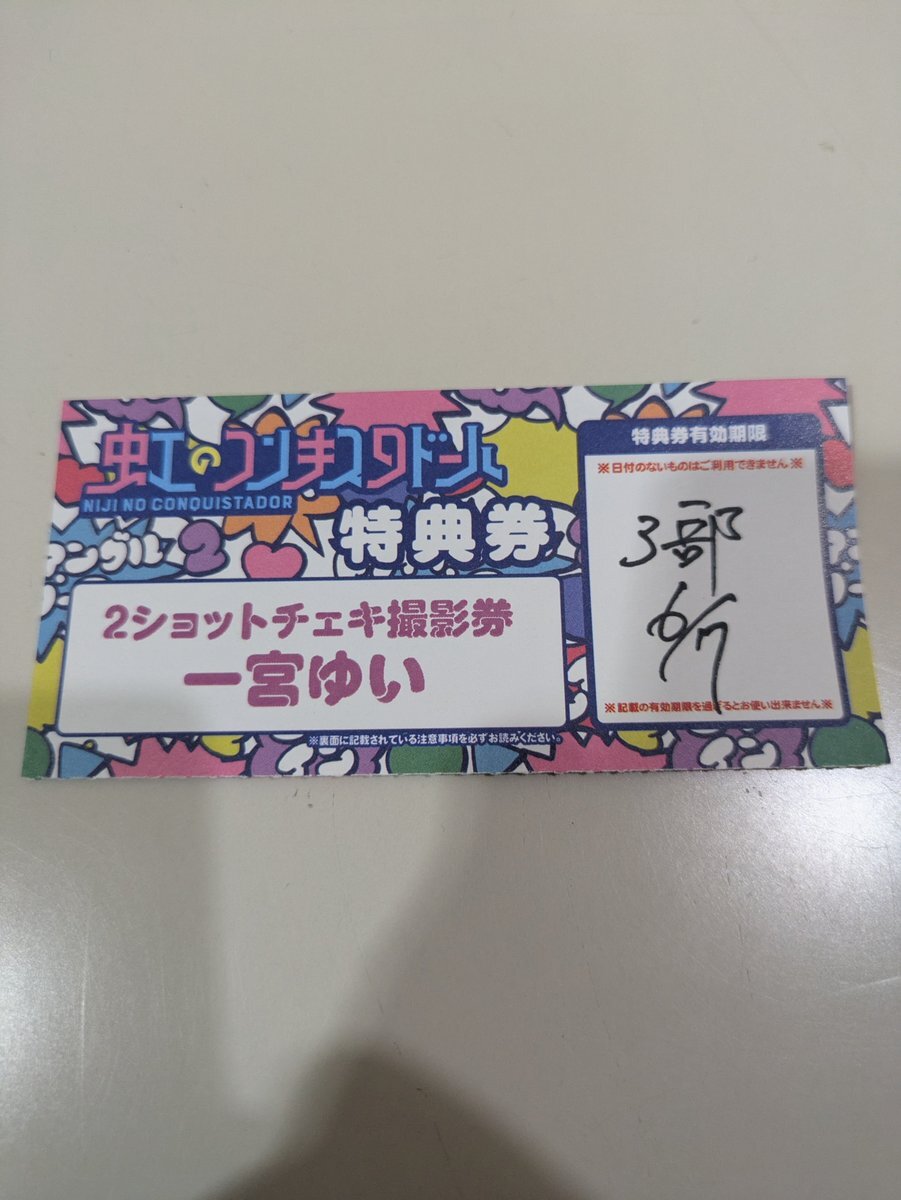 虹のコンキスタドール
NIJI NO CONQUISTADOR
特典券
アングル2
2ショットチェキ撮影券
一宮ゆい
※裏面に記載されている注意事項を必ずお読みください。
特典券有効期限
※日付のないものはご利用できません※
3部
6/7
※記載の有効期限を過ぎるとお使い出来ません※